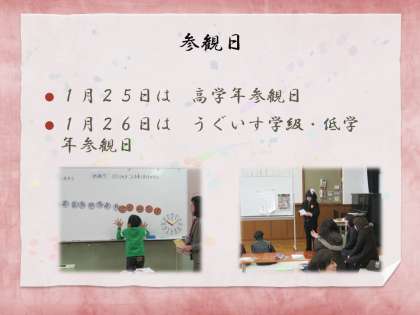 参観日
１月２５日は　高学年参観日
１月２６日は　うぐいす学級・低学
年参観日